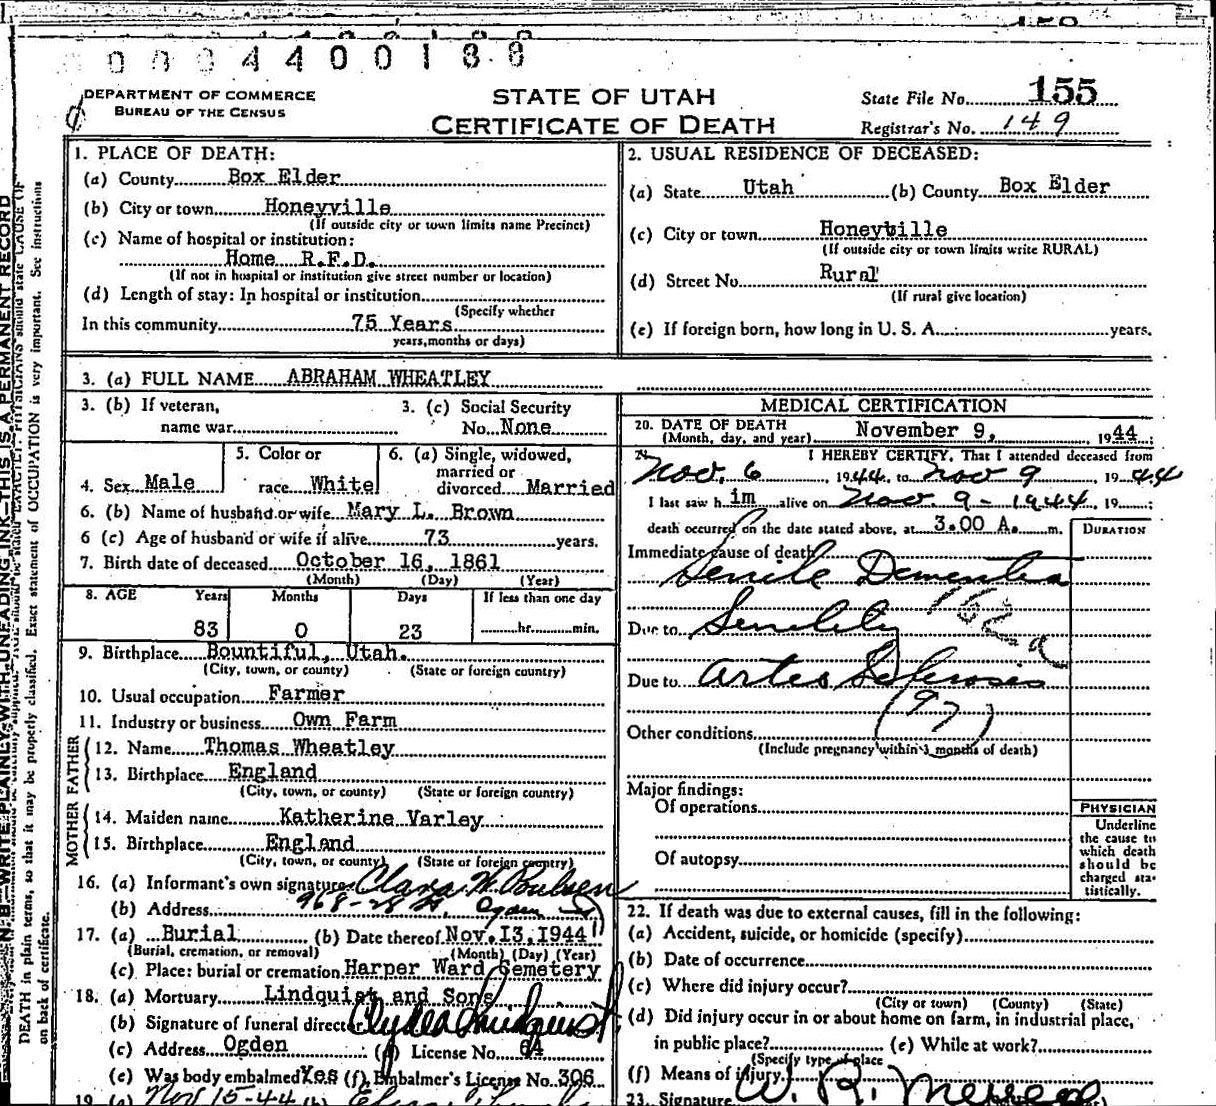 00004400188
DEPARTMENT OF COMMERCE
BUREAU OF THE CENSUS
STATE OF UTAH
CERTIFICATE OF DEATH
State File No. 155
Registrar's No. 149
1. PLACE OF DEATH:
(a) County Box Elder
(b) City or town Honeyville
(If outside city or town limits name Precinct)
(c) Name of hospital or institution:
Home R.F.D.
(If not in hospital or institution give street number or location)
(d) Length of stay: In hospital or institution
(Specify whether
In this community 75 Years
years, months or days)
2. USUAL RESIDENCE OF DECEASED:
(a) State Utah (b) County Box Elder
(c) City or town Honeybille
(If outside city or town limits write RURAL)
(d) Street No. Rural
(If rural give location)
(e) If foreign born, how long in U. S. A. years.
3. (a) FULL NAME ABRAHAM WHEATLEY
3. (b) If veteran,
name war
3. (c) Social Security
No. None
4. Sex Male
5. Color or
race White
6. (a) Single, widowed,
married or
divorced Married
6. (b) Name of husband or wife Mary L. Brown
6 (c) Age of husband or wife if alive 73 years.
7. Birth date of deceased October 16, 1861
(Month) (Day) (Year)
8. AGE Years Months Days If less than one day
83 0 23 hr. min.
9. Birthplace Bountiful, Utah.
(City, town, or county) (State or foreign country)
10. Usual occupation Farmer
11. Industry or business Own Farm
FATHER
12. Name Thomas Wheatley
13. Birthplace England
(City, town, or county) (State or foreign country)
MOTHER
14. Maiden name Katherine Varley
15. Birthplace England
(City, town, or county) (State or foreign country)
16. (a) Informant's own signature Clara W. Poulsen
(b) Address 968-28 St. Ogden
17. (a) Burial (b) Date thereof Nov. 13, 1944
(Burial, cremation, or removal) (Month) (Day) (Year)
(c) Place: burial or cremation Harper Ward Cemetery
18. (a) Mortuary Lindquist and Sons
(b) Signature of funeral director Clyde Lindquist
(c) Address Ogden (d) License No. 64
(e) Was body embalmed Yes (f) Embalmer's License No. 306
19. (a) Nov 15-44 (b)
MEDICAL CERTIFICATION
20. DATE OF DEATH
(Month, day, and year) November 9, 1944;
21. I HEREBY CERTIFY, That I attended deceased from
Nov. 6, 1944, to Nov 9, 1944
I last saw him alive on Nov. 9-1944, 19 ;
death occurred on the date stated above, at 3.00 A. m.
DURATION
Immediate cause of death
Senile Dementia
162a
Due to Senility
Due to Arterio Sclerosis
(97)
Other conditions
(Include pregnancy within 3 months of death)
Major findings:
Of operations
Of autopsy
PHYSICIAN
Underline
the cause to
which death
should be
charged sta-
tistically.
22. If death was due to external causes, fill in the following:
(a) Accident, suicide, or homicide (specify)
(b) Date of occurrence
(c) Where did injury occur?
(City or town) (County) (State)
(d) Did injury occur in or about home on farm, in industrial place,
in public place? (e) While at work?
(Specify type of place
(f) Means of injury
23. Signature W. R. Merrell
N. B.—WRITE PLAINLY, WITH UNFADING INK—THIS IS A PERMANENT RECORD
DEATH in plain terms, so that it may be properly classified. Exact statement of OCCUPATION is very important. See instructions
on back of certificate.